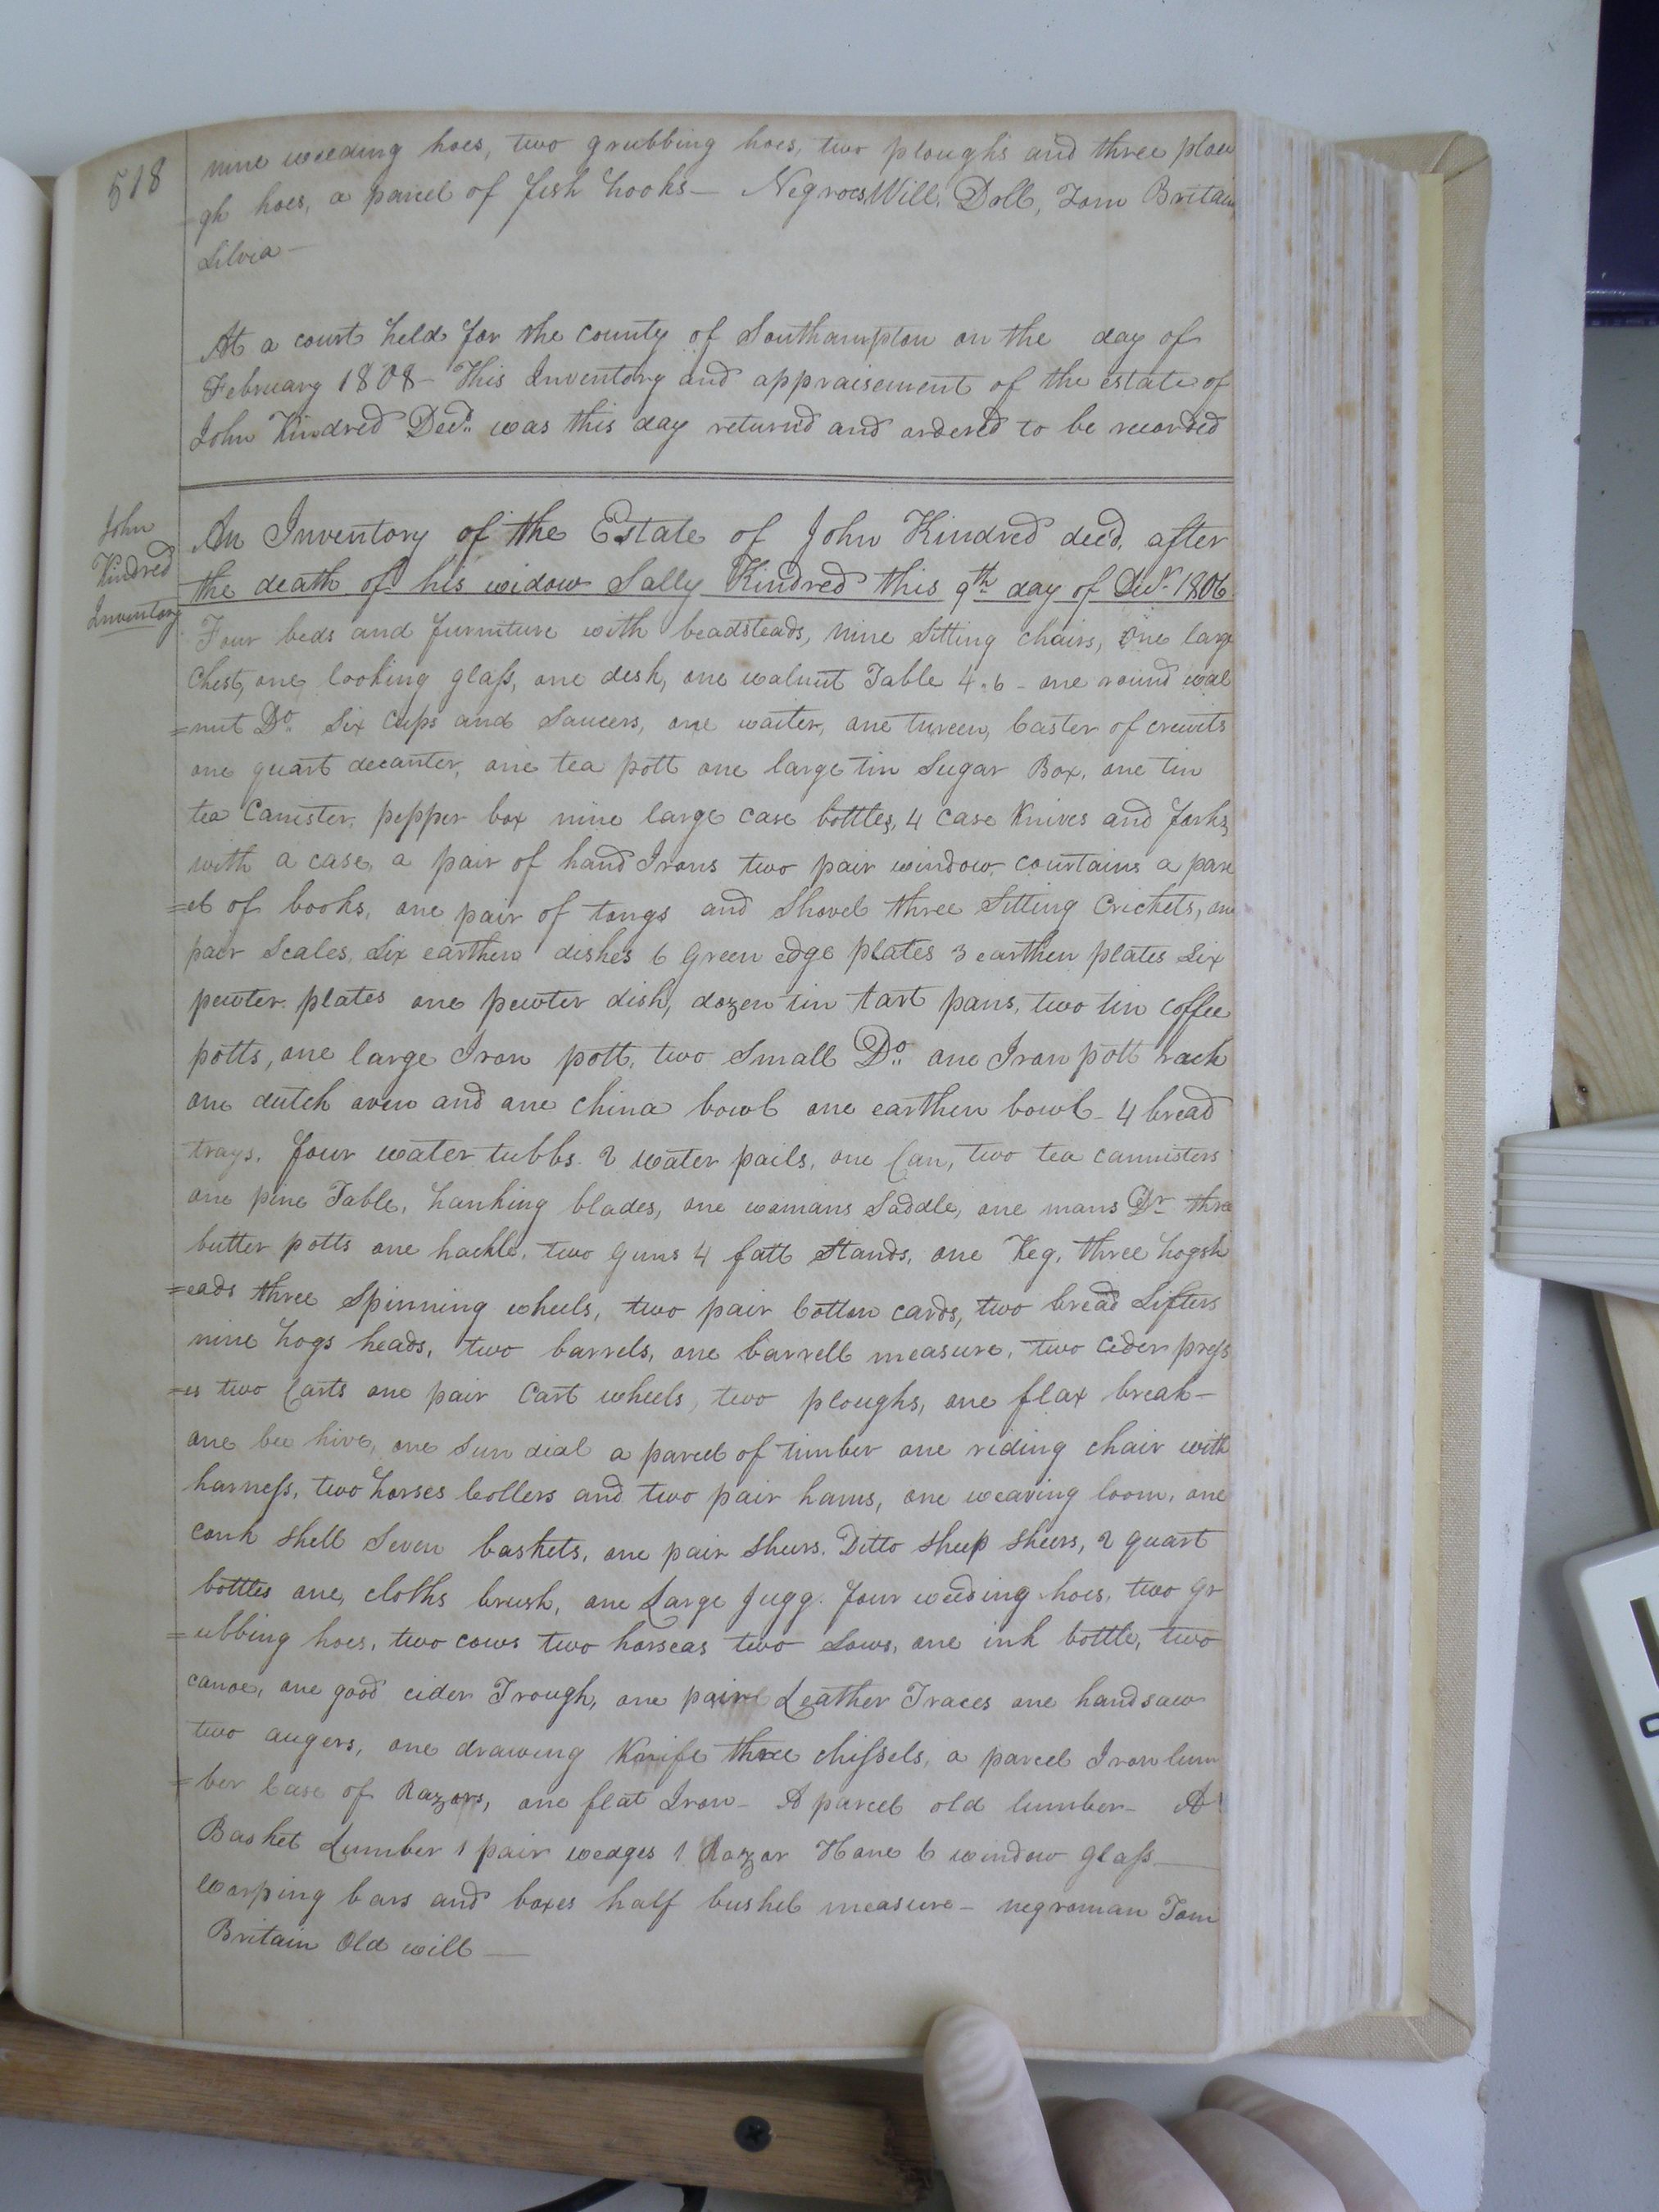 518
nine weeding hoes, two grubbing hoes, two ploughs and three plou
gh hoes, a parcel of fish hooks - Negroes Will, Doll, Tom Britain
Silvia -
At a court held for the county of Southampton on the day of
February 1808 - This Inventory and appraisement of the estate of
John Kindred Decd. was this day return'd and ordered to be recorded
John
Kindred
Inventory
An Inventory of the Estate of John Kindred decd. after
the death of his widow Sally Kindred this 9th day of Decr. 1806
Four beds and furniture with beadsteads, nine Sitting chairs, One large
Chest, one looking glass, one desk, one walnut Table 4.6 - one round wal
=nut Do. Six Cups and Saucers, one waiter, one tureen, Caster of crewits
one quart decanter, one tea pott one large tin Sugar Box, one tin
tea Canister, pepper box nine large case bottles, 4 case Knives and forks
with a case, a pair of hand Irons two pair window courtains a parc
=el of books, one pair of tongs and Shovel three Sitting Crickets, one
pair Scales, Six earthen dishes 6 Green edge plates 3 earthen plates Six
pewter plates one pewter dish, dozen tin tart pans, two tin coffee
potts, one large Iron pott, two Small Do. one Iron pott rack
one dutch oven and one china bowl one earthen bowl - 4 bread
trays, four water tubbs 2 water pails, one Can, two tea cannisters
one pine Table, hanking blades, one womans Saddle, one mans Do three
butter potts one hackle, two Guns 4 fatt Stands, one Keg, three hogsh
=eads three Spinning wheels, two pair Cotton cards, two bread Sifters
nine hogs heads, two barrels, one barrell measure, two Cider press
=es two Carts one pair Cart wheels, two ploughs, one flax break -
one bee hive, one Sun dial a parcel of timber one riding chair with
harness, two horses Collers and two pair hams, one weaving loom, one
conk shell Seven baskets, one pair Sheers. Ditto Sheep Sheers, 2 quart
bottles one, cloths brush, one Large Jugg. four weeding hoes, two gr
=ubbing hoes, two cows two horseas two Sows, one ink bottle, two
canoe, one good cider Trough, one pair Leather Traces one handsaw
two augers, one drawing Knife three chissels, a parcel Iron lum
=ber Case of Razors, one flat Iron - A parcel old lumber - A
Basket Lumber 1 pair wedges 1 Razor Hone 6 window glass
Warping bars and boxes half bushel measure - negroman Tom
Britain Old will